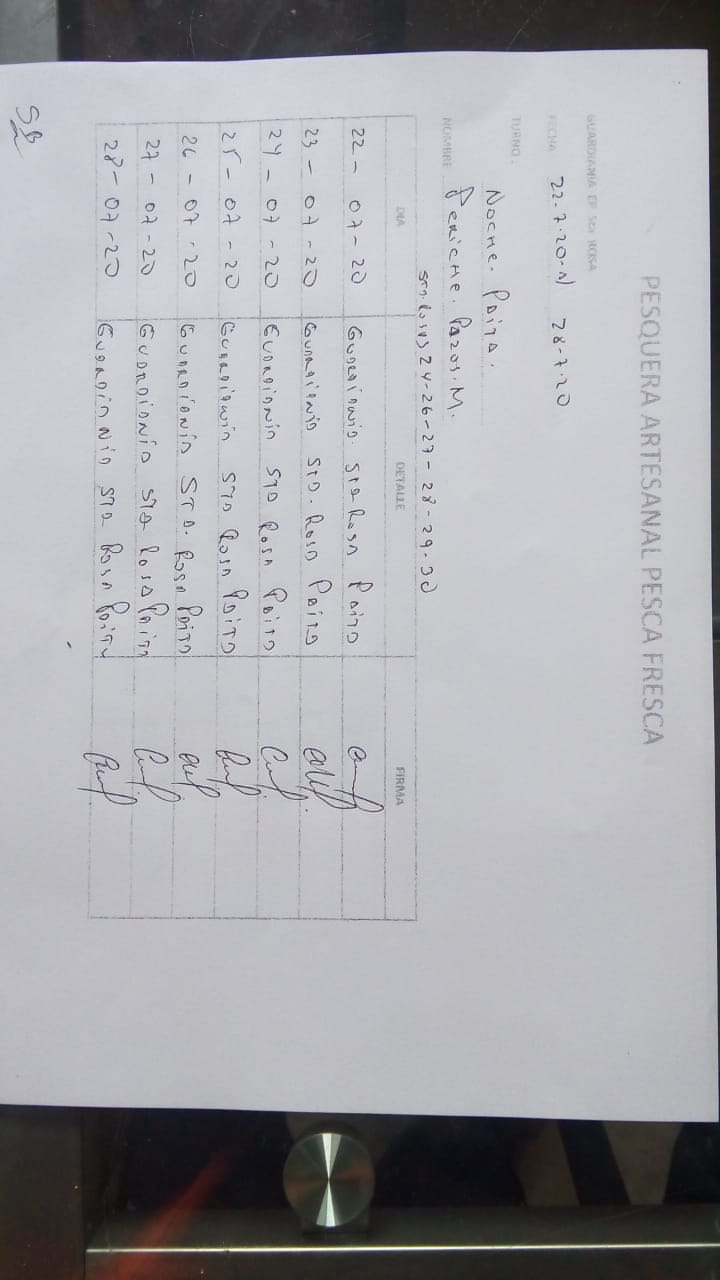 PESQUERA ARTESANAL PESCA FRESCA
GUARDIANIA EP Sta ROSA
FECHA 22.7.20.N 28-7.20
TURNO. Noche. Paita.
NOMBRE Periche. Pazos. M.
24-26-27-28-29-30
DIA DETALLE FIRMA
22-07-20 Guardiania. Sta Rosa Paita
23-07-20 Guardiania Sta. Rosa Paita
24-07-20 Guardiania Sta Rosa Paita
25-07-20 Guardiania Sta Rosa Paita
26-07-20 Guardiania Sta. Rosa Paita
27-07-20 Guardiania Sta Rosa Paita
28-07-20 Guardiania Sta Rosa Paita